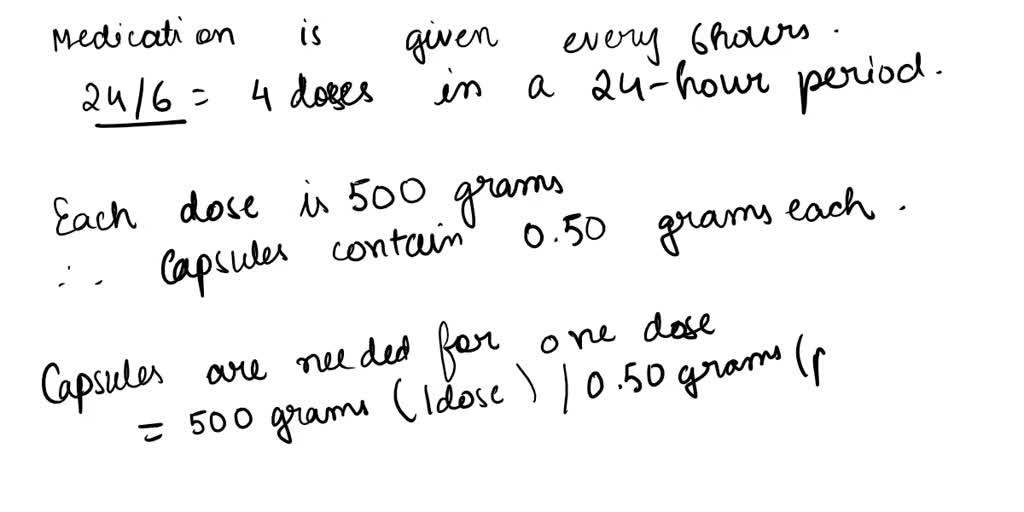 Medication is given every 6hours.
24/6 = 4 doses in a 24-hour period.
Each dose is 500 grams
∴ Capsules contain 0.50 grams each.
Capsules are needed for one dose
= 500 grams (1dose) / 0.50 grams (p